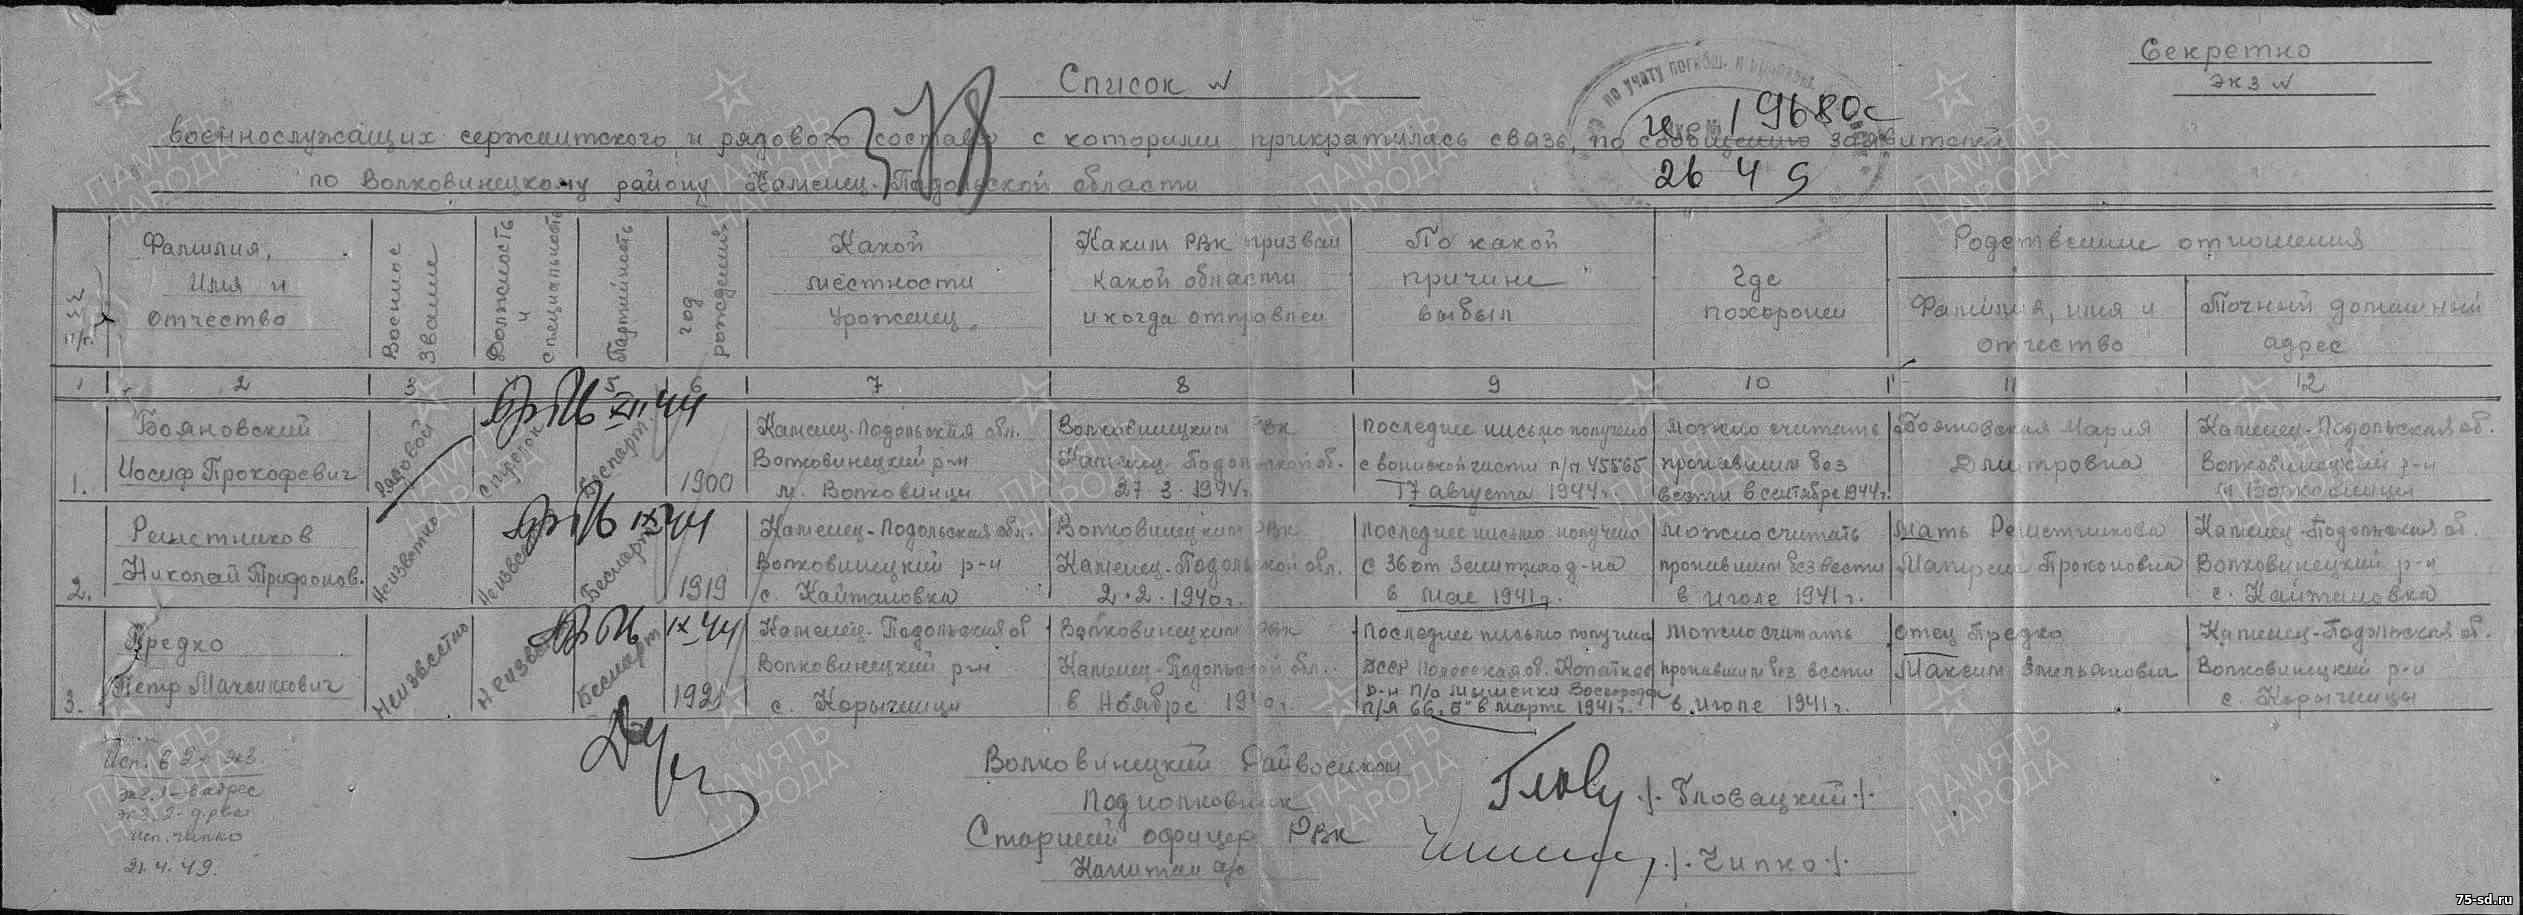 Секретно
экз №
Список №
по учату погибш. и пропавш.
вх № 19680с
26 4 9
378
военнослужащих сержантского и рядового состава с которыми прикратилась связь, по сообщению заявителей
по Волковинецкому району Каменец-Подольской области
№№ п/п.
Фамилия, Имя и отчество
Военное звание
Должность и специальность
Партийность
год рождения
Какой местности Уроженец
Каким РВК призван какой области и когда отправлен
По какой причине выбыл
Где похоронен
Родственные отношения
Фамилия, имя и отчество
Точный домашний адрес
1 2 3 5 6 7 8 9 10 11 12
1.
Бояновский
Иосиф Прокофевич
Рядовой
стрелок
беспарт.
1900
Каменец-Подольская обл.
Волковинецкий р-н
м. Волковинци
Волковинецким РВК
Каменец-Подольской об.
27.3.1944г.
Последнее письмо получено
с воинской части п/п 45565
17 августа 1944г.
можно считать
пропавшим без
вести в сентябре 1944г.
Бояновская Мария
Дмитровна
Каменец-Подольская об.
Волковинецкий р-н
м Волковинци
XII 44
2.
Решетников
Николай Трифонов.
Неизвестно
Неизвестно
Беспарт
1919
Каменец-Подольская обл.
Волковинецкий р-н
с. Кайтановка
Волковинецким РВК
Каменец-Подольской обл.
2.2.1940г.
Последнее письмо получено
С 36 от зенитного д-на
в мае 1941г.
можно считать
пропавшим без вести
в июле 1941г.
Мать Решетникова
Прокоповна
Каменец-Подольская об.
Волковинецкий р-н
с. Кайтановка
IX 44
3.
Предко
Петр Максимович
Неизвестно
Неизвестно
Беспарт
1921
Каменец-Подольская об
Волковинецкий р-н
с. Корыченци
Волковинецким РВК
Каменец-Подольской обл.
в Ноябре 1940г.
Последнее письмо получил
БССР Полесская об. Копаткев
р-н п/о Мышенка
п/я 66 "б" в марте 1941г.
можно считать
пропавшим без вести
в июле 1941г.
отец Предко
Максим Эмельянович
Каменец-Подольская об.
Волковинецкий р-н
с. Корыченцы
IX 44
Исп. в 2х экз.
экз. 1-в адрес
экз. 2-в дело
исп. Чипко
21.4.49.
Волковинецкий Райвоенком
Подполковник
/. Гловацкий ./.
Старший офицер РВК
Капитан а/с
./. Чипко ./.
ПАМЯТЬ НАРОДА
75-sd.ru